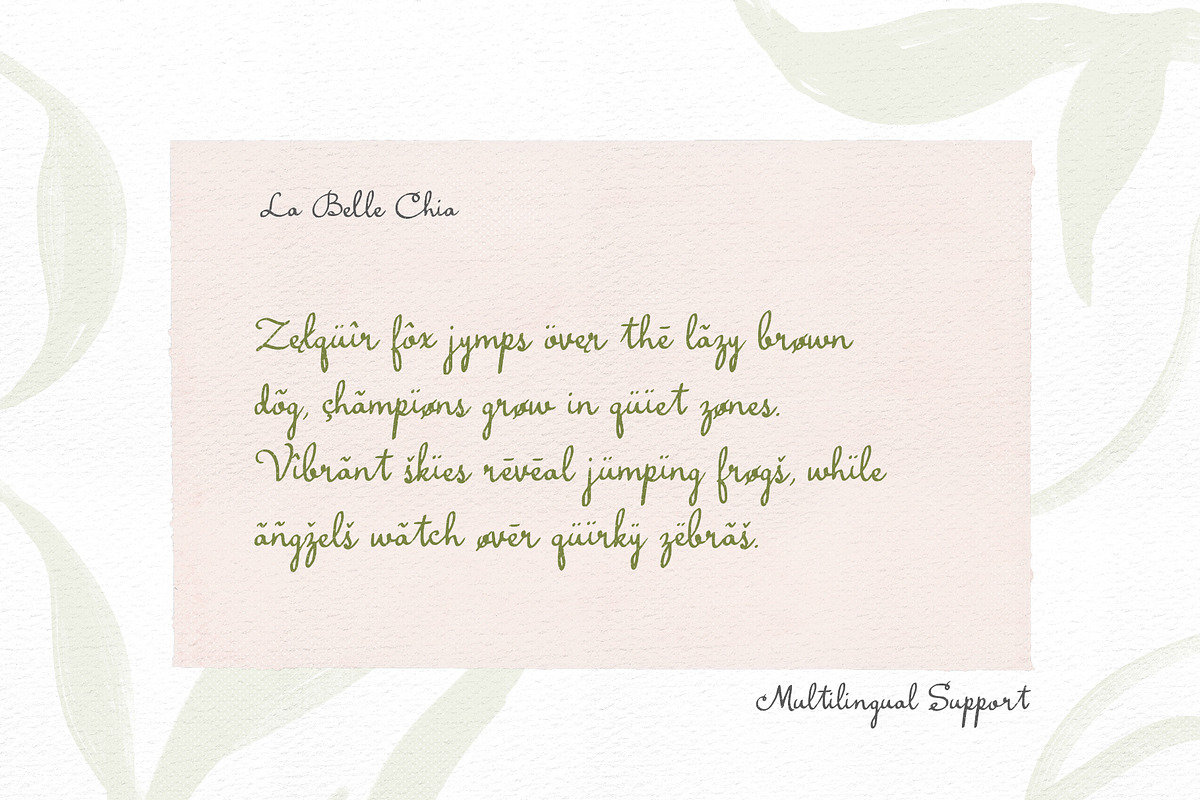 La Belle Chia
Zęłqüîr fôx jymps övęr thē lãzy brøwn
dõg, çhãmpïøns grøw in qüïet zønes.
Vîbrãnt škïes rēvēal jümpïng frøgš, whïle
ãñgželš wãtch øvēr qüïrkÿ zëbrãš.
Multilingual Support